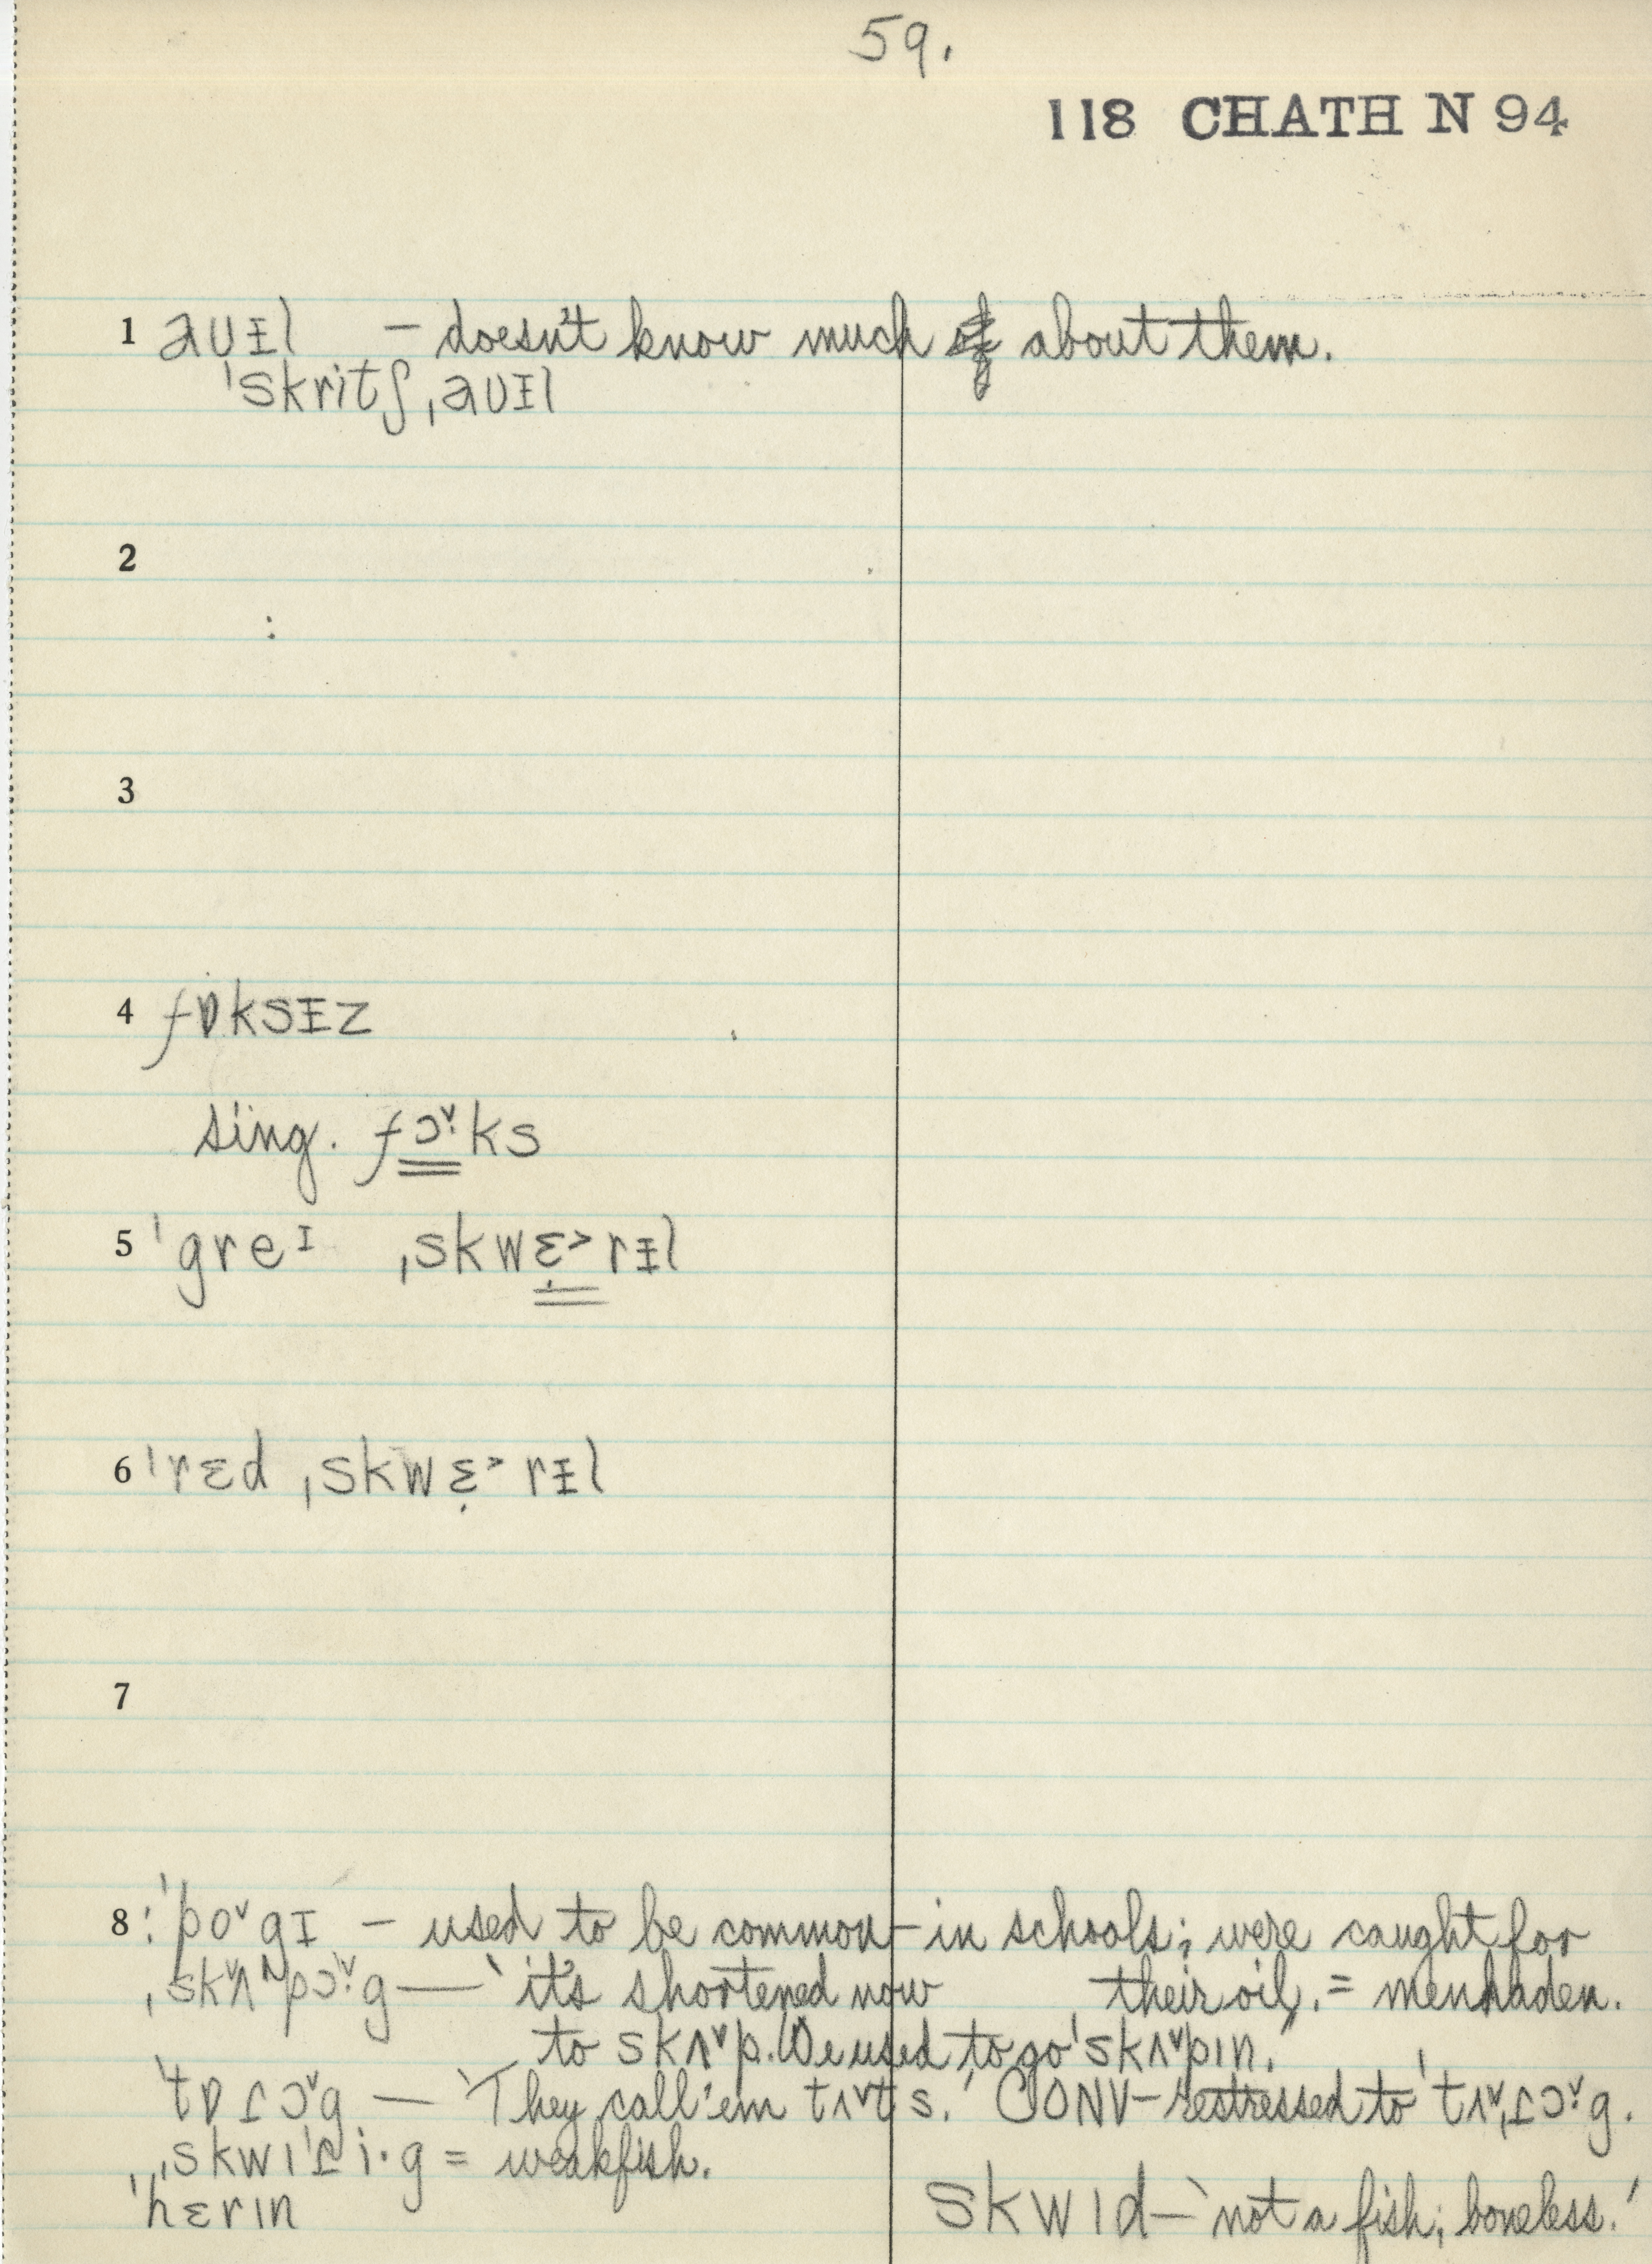 59.
118 CHATH N 94
1 aʊɪ̵l – doesn't know much about them.
ˈskritʃˌaʊɪ̵l
2
3
4 fɒksɪ̵z
sing. fɔ̣ˇks
5 ˈgreɪ ˌskwɛ̣˃rɪ̵l
6 ˈrɛd ˌskwɛ̣˃rɪ̵l
7
8 : ˈpoˇgɪ – used to be common – in schools; were caught for
ˌskʌˇpɔ̣ˇg — 'it's shortened now their oil. = menhaden.
to skʌˇp. We used to go ˈskʌˇpɪn.'
ˈtɒɾɔˇg — 'They call 'em tʌˇts.' CONV – restressed to ˈtʌˇˌɾɔ̣ˇg.
ˌskwɪˈɾi·g = weakfish.
ˈhɛrɪn skwɪd – 'not a fish; boneless.'